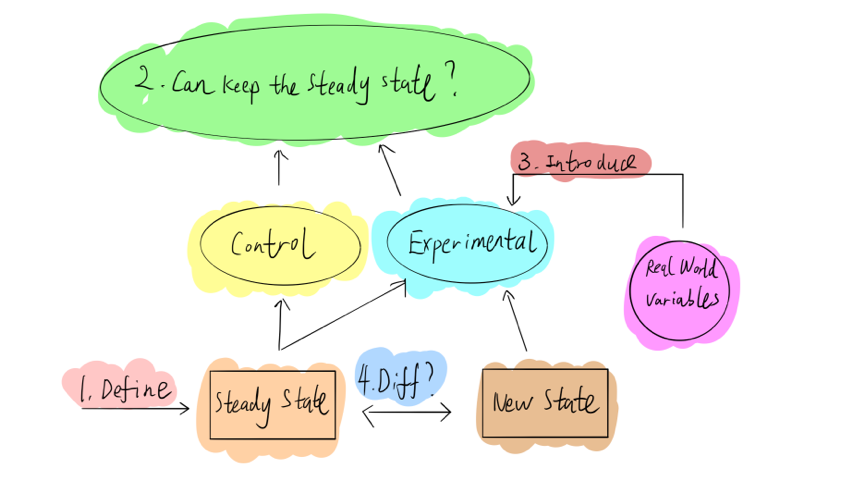 2. Can keep the steady state?
3. Introduce
Control
Experimental
Real World
variables
1. Define
Steady State
4. Diff?
New State